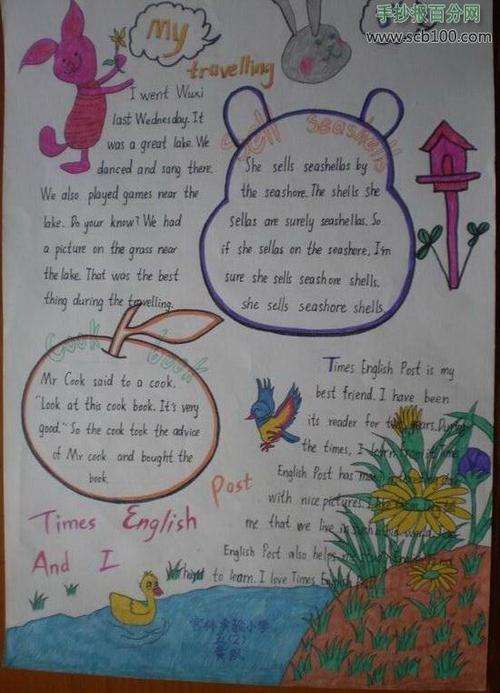 手抄报百分网
www.scb100.com
My
travelling
I went Wuxi
last Wednesday. It
was a great lake. We
danced and sang there.
We also played games near the
lake. Do your know? We had
a picture on the grass near
the lake. That was the best
thing during the travelling.
Sell seashells
She sells seashellas by
the seashore. The shells she
sellas are surely seashellas. So
if she sellas on the seashore, I,m
sure she sells seashore shells.
she sells seashore shells.
Cook book
Mr Cook said to a cook.
"Look at this cook book. It's very
good." So the cook took the advice
of Mr cook and bought the
book.
Times English Post is my
best friend. I have been
its reader for years. During
the times, I learn
English Post has
with nice pictures. I
me that we live in
English Post also helps
to learn. I love Times English
Post
Times English
And I
实验小学